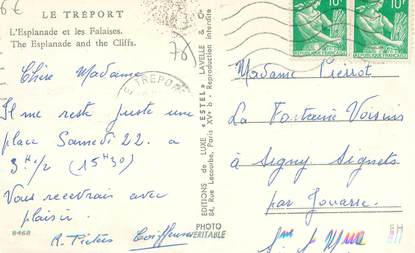 6€
LE TRÉPORT
L'Esplanade et les Falaises.
The Esplanade and the Cliffs.
76
Chère Madame
Il me reste juste une
place Samedi 22. a
3H1/2 (15H30)
Vous recevrais avec
plaisir.
Coiffeuse
8468
LE TRÉPORT
EDITIONS de LUXE "ESTEL" LAVELLE & Cie
84, Rue Lecourbe, Paris XVe b Reproduction Interdite
PHOTO
VÉRITABLE
10F
10F
Madame Pierrot
La Fontaine Voisins
à Signy Signets
par Jouarre.